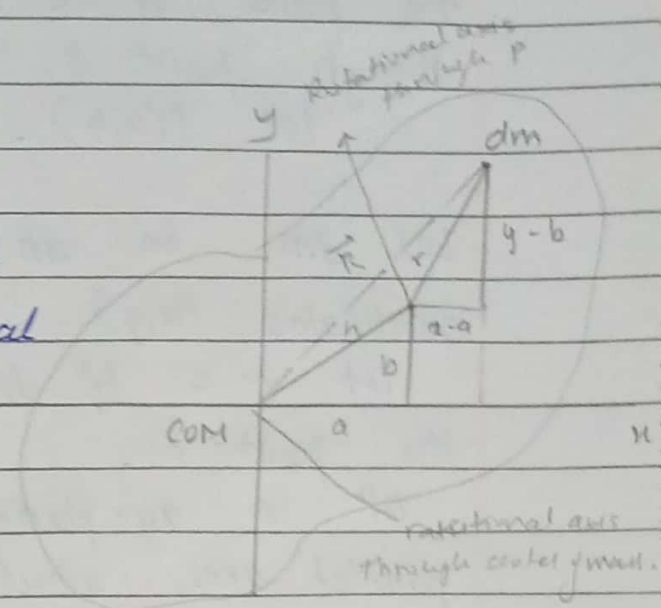 Rotational axis
through P
y
dm
y - b
R
r
al
h
x-a
b
COM
a
x
rotational axis
through center of mass.